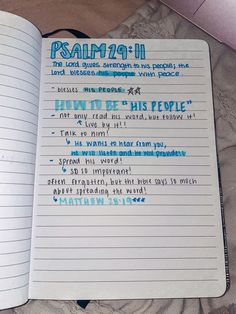 PSALM 29:11
The Lord gives strength to his people; the
Lord blesses his people with peace.
- blesses HIS PEOPLE ☆☆
HOW TO BE "HIS PEOPLE"
- not only read his word, but follow it!
↳ Live by it!!
- Talk to him!
↳ He wants to hear from you,
he will listen and he will provide!!
- Spread his word!
↳ SO SO important!
often forgotten, but the bible says so much
about spreading the word!
↳ MATTHEW 28:19